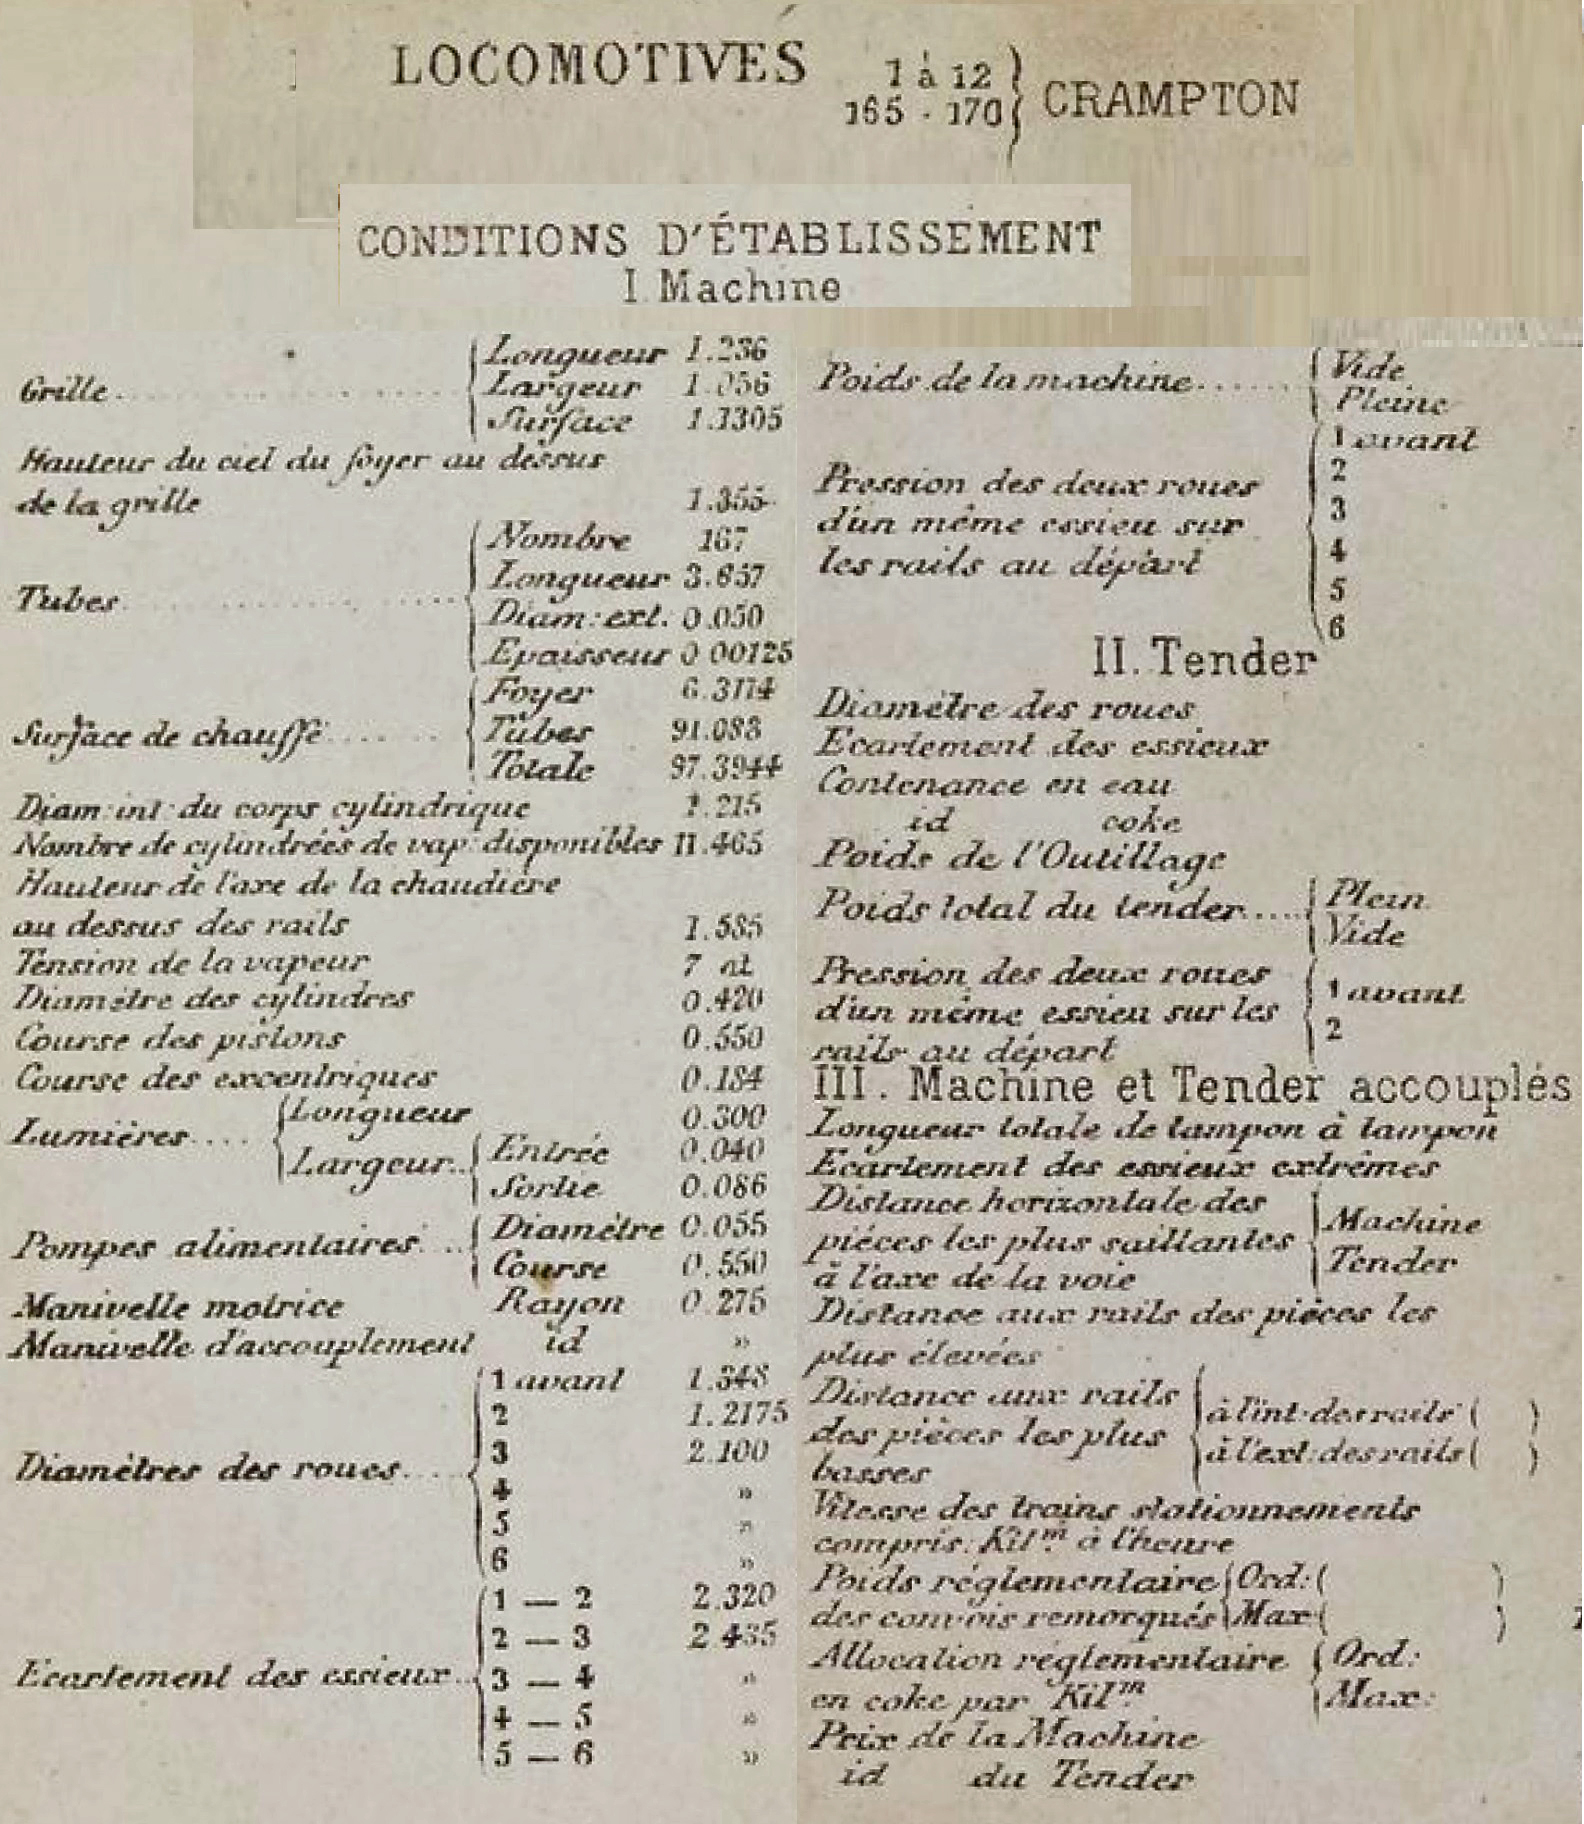 LOCOMOTIVES 1 à 12 165 - 170 CRAMPTON
CONDITIONS D'ÉTABLISSEMENT
I. Machine
Grille
Longueur 1.236
Largeur 1.056
Surface 1.3305
Hauteur du ciel du foyer au dessus
de la grille 1.355
Tubes
Nombre 167
Longueur 3.657
Diam: ext. 0.050
Epaisseur 0.00125
Surface de chauffe
Foyer 6.3114
Tubes 91.083
Totale 97.3944
Diam: int: du corps cylindrique 1.215
Nombre de cylindrées de vap: disponibles 11.465
Hauteur de l'axe de la chaudière
au dessus des rails 1.585
Tension de la vapeur 7 at
Diamètre des cylindres 0.420
Course des pistons 0.550
Course des excentriques 0.184
Lumières
Longueur 0.300
Largeur
Entrée 0.040
Sortie 0.086
Pompes alimentaires
Diamètre 0.055
Course 0.550
Manivelle motrice Rayon 0.275
Manivelle d'accouplement id »
Diamètres des roues
1 avant 1.348
2 1.2175
3 2.100
4 »
5 »
6 »
Ecartement des essieux
1 — 2 2.320
2 — 3 2.435
3 — 4 »
4 — 5 »
5 — 6 »
Poids de la machine
Vide
Pleine
Pression des deux roues
d'un même essieu sur
les rails au départ
1 avant
2
3
4
5
6
II. Tender
Diamètre des roues
Ecartement des essieux
Contenance en eau
id coke
Poids de l'Outillage
Poids total du tender
Plein
Vide
Pression des deux roues
d'un même essieu sur les
rails au départ
1 avant
2
III. Machine et Tender accouplés
Longueur totale de tampon à tampon
Ecartement des essieux extrêmes
Distance horizontale des
pièces les plus saillantes
à l'axe de la voie
Machine
Tender
Distance aux rails des pièces les
plus élevées
Distance aux rails
des pièces les plus
basses
à l'int: des rails ( )
à l'ext: des rails ( )
Vitesse des trains stationnements
compris: Kil.m à l'heure
Poids réglementaire Ord: ( )
des convois remorqués Max: ( )
Allocation réglementaire Ord:
en coke par Kil.m Max:
Prix de la Machine
id du Tender